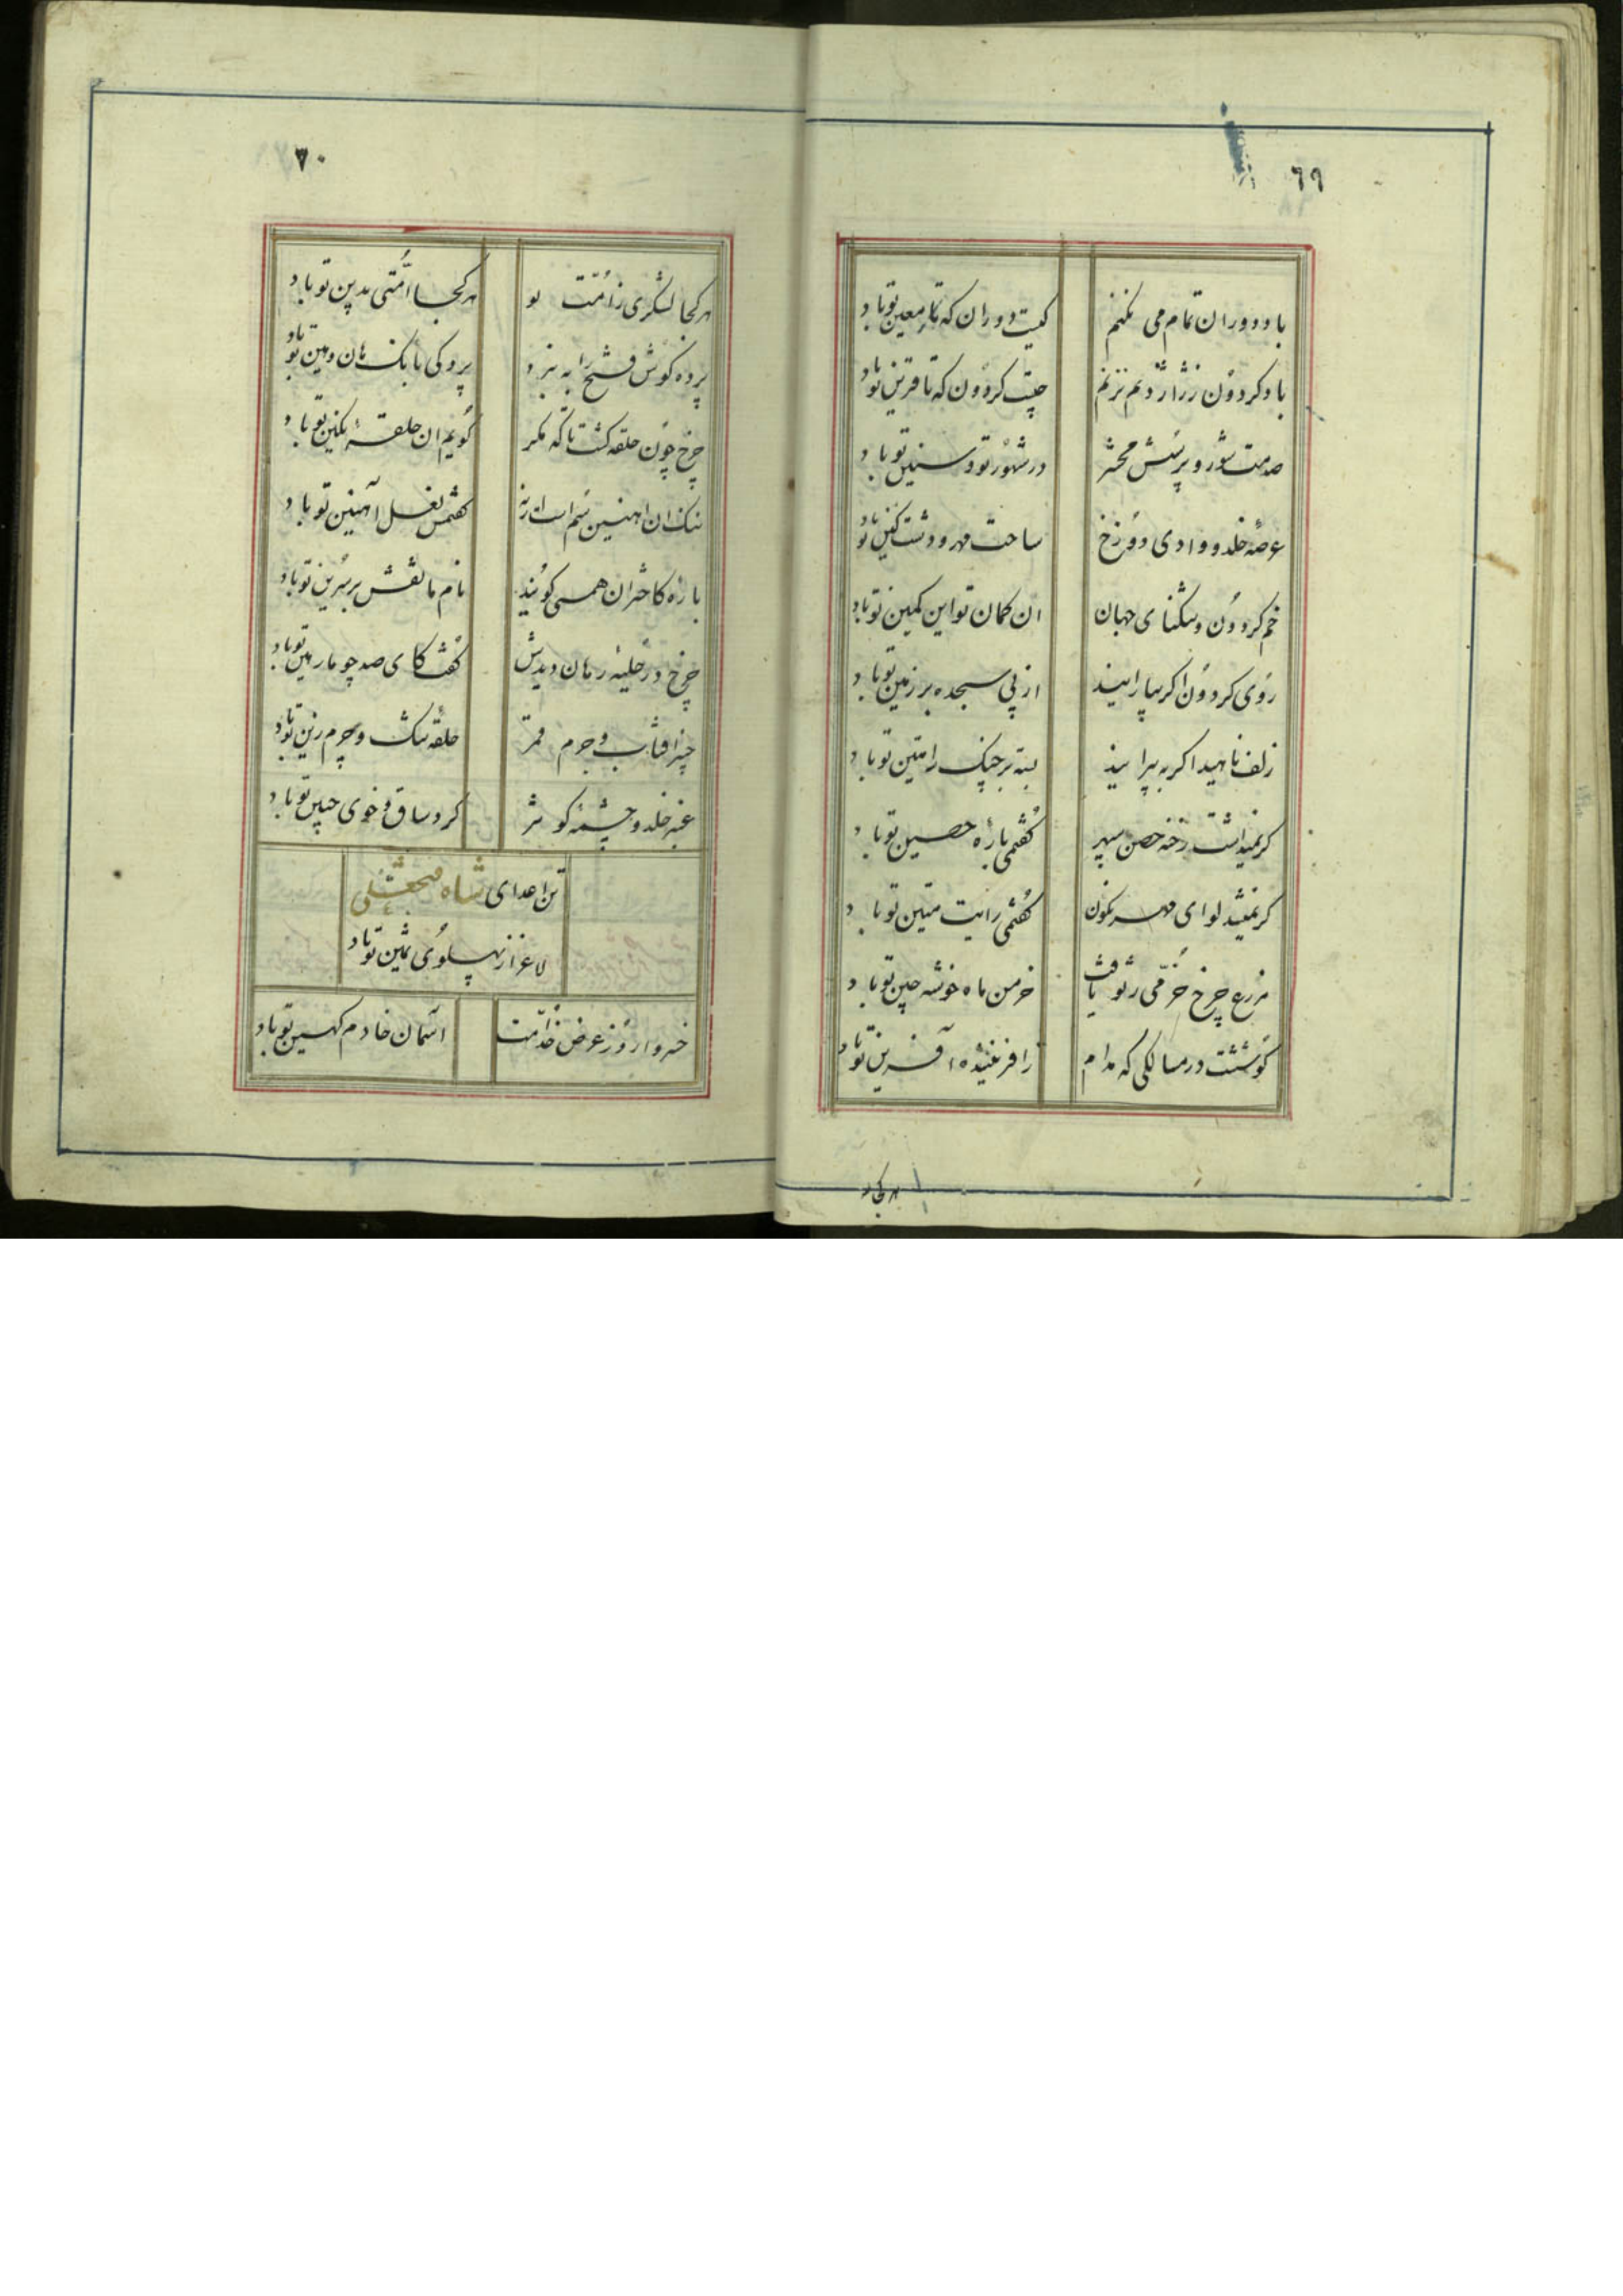 ٦٩
باد دوران تمام می نکنم
کیست دوران که تا معین تو باد
باد کردون ز راز دم نزنم
چیست کردون که تا قرین تو باد
صدمت شور و پرسش محشر
در شهور تو و سنین تو باد
عرصه خلد و وادی دوزخ
ساحت مهر و دشت کین تو باد
خم کردون و تنکنای جهان
ان کمان تو این کمین تو باد
روی کردون اکر بیارایند
از پی سجده بر زمین تو باد
زلف ناهید اکر به پیرایند
بسته بر چنک رامتین تو باد
کر نمیداشت رخنه حصن سپهر
کفتمی باره حصین تو باد
کر نمیشد لوای مهر نکون
کفتمی رایت متین تو باد
مزرع چرخ خرمی ز تو یافت
خرمن ماه خوشه چین تو باد
کوششت در مسالکی که مدام
زافریننده آفرین تو باد
هر کجا
٧٠
هر کجا لشکری ز امت تو
هر کجا امتی بدین تو باد
پرده کوش فتح را به نبرد
پرد کی بانک هان و هین تو باد
چرخ چون حلقه کشت تا که مکر
کویم ان حلقه نکین تو باد
ننک ان اهنین سم است ارنه
کفتمش نعل آهنین تو باد
باره کاختران همی کویند
نام ما نقش بر سرین تو باد
چرخ در حلیه رهان دیدش
کفت کای صد چو ما رهین تو باد
چنبر افتاب و جرم قمر
حلقه تنک و چرم زین تو باد
عنبر خلد و چشمه کوثر
کرد ساق و خوی جبین تو باد
تن اعدای شاه فتحعلی
لاغر از پهلوی ثمین تو باد
خسروا روز عرض خدامت
اسمان خادم کهین تو باد